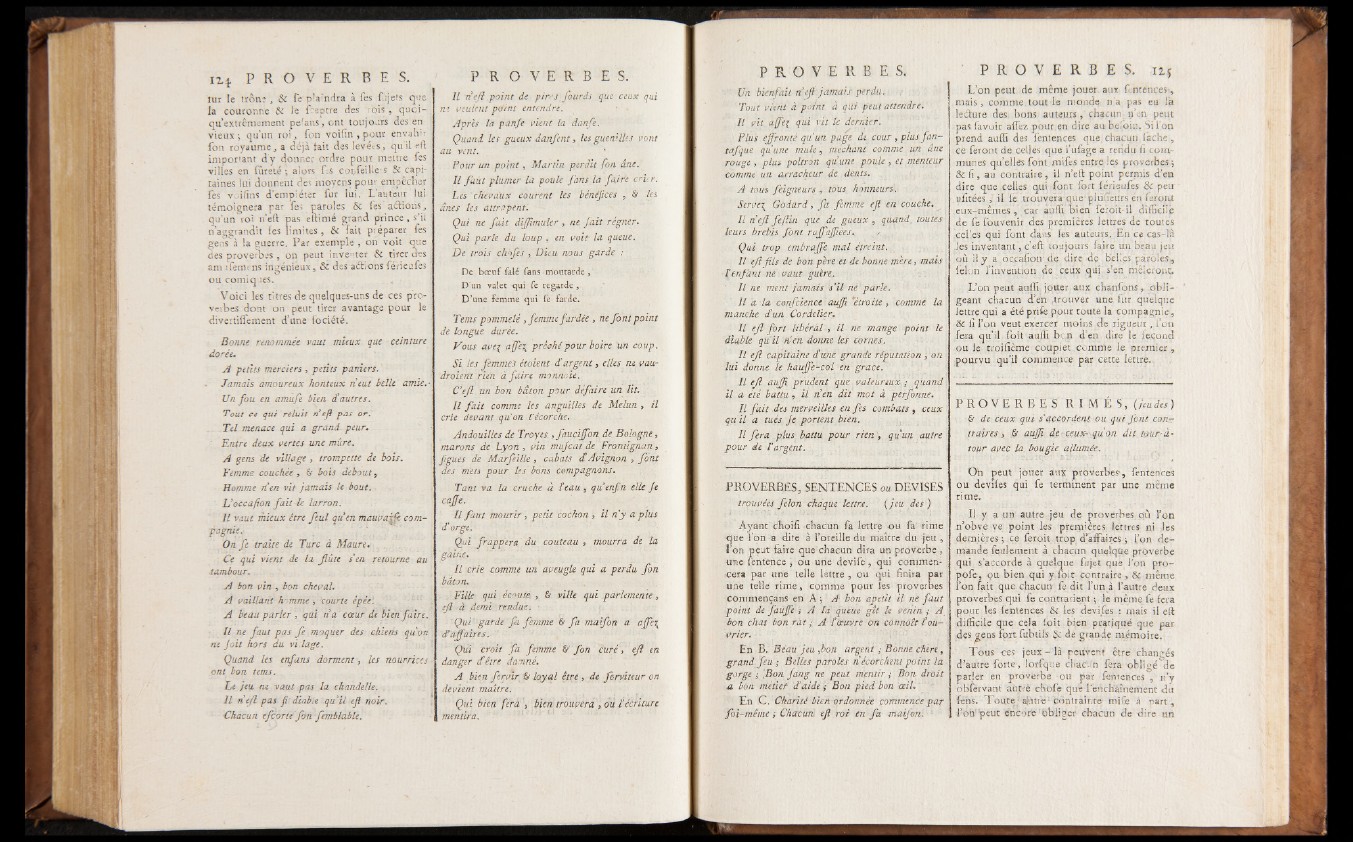 124 PROVERBES.
sur le trône, & se plaindra à ses sujets que
la couronne & le sceptre des rois, quoi-
qu'extrêmement pesans, ont toujours des en-
vieux; qu'un roi, son voisin, pour envahir
son royaume, a déjà fait des levées, qu'il est
important d'y donner ordre pour mettre ses
villes en sûreté; alors ses conseillers & capi-
taines lui donnent des moyens pour empêcher
ses voisins d'empiéter sur lui. L'auteur lui
témoignera par ses paroles & ses actions,
qu'un roi n'est pas estimé grand prince, s'il
n'aggrandit ses limites, & fait préparer ses
gens à la guerre. Par exemple, on voit que
des proverbes, on peut inventer & tirer des
amusemens ingénieux, & des actions sérieuses
ou comiques.
Voici les titres de quelques-uns de ces pro-
verbes dont on peut tirer avantage pour le
divertissement d'une société.
Bonne renommée vaut mieux que ceinture
dorée.
A petits merciers, petits paniers.
Jamais amoureux honteux n'eut belle amie.
Un fou en amuse bien d'autres.
Tout ce qui reluit n'est pas or.
Tel menace qui a grand peur.
Entre deux vertes une mûre.
A gens de village, trompette de bois.
Femme couchée, & bois debout,
Homme n'en vit jamais le bout.
L'occasion fait le larron.
Il vaut mieux être seul qu'en mauvaise com-
pagnie.
On se traite de Turc à Maure.
Ce qui vient de la flûte s'en retourne au
tambour.
A bon vin, bon cheval.
A vaillant homme, courte épée.
A beau parler, qui n'a cœur de bien faire.
Il ne faut pas se moquer des chiens qu'on
ne soit hors du village.
Quand les enfans dorment, les nourrices
ont bon tems.
Le jeu ne vaut pas la chandelle.
Il n'est pas si diable qu'il est noir.
Chacun escorte son semblable.
PROVERBES.
Il n'est point de pires sourds que ceux qui
ne veulent point entendre.
Après la panse vient la danse.
Quand les gueux dansent, les guenilles vont
au vent.
Pour un point, Martin perdit son âne.
Il faut plumer la poule sans la faire crier.
Les chevaux courent les bénéfices, & les
ânes les attrapent.
Qui ne sait dissimuler, ne sait régner.
Qui parle du loup, en voit la queue.
De trois choses, Dieu nous garde :
De bœuf salé sans moutarde,
D'un valet qui se regarde,
D'une femme qui se farde.
Tems pommelé, femme fardée, ne sont point
de longue durée.
Vous avez assez prêché pour boire un coup.
Si les femmes étoient d'argent, elles ne vau-
droient rien à faire monnoie.
C'est un bon bâton pour défaire un lit.
Il fait comme les anguilles de Melun, il
crie devant qu'on l'écorche.
Andouilles de Troyes, saucisson de Bologne,
marons de Lyon, vin muscat de Frontignan,
figues de Marseille, cabats d'Avignon, sont
des mets pour les bons compagnons.
Tant va la cruche à l'eau, qu'enfin elle se
casse.
Il faut mourir, petit cochon, il n'y a plus
d'orge.
Qui frappera du couteau, mourra de la
gaîne.
Il crie comme un aveugle qui a perdu son
bâton.
Fille qui écoute, & ville qui parlemente,
est à demi rendue.
Qui garde sa femme & sa maison a assez
d'affaires.
Qui croit sa femme & son curé, est en
danger d'être damné.
A bien servir & loyal être, de serviteur on
devient maître.
Qui bien fera, bien trouvera, ou l'écriture
mentira.
PROVERBES.
Un bienfait n'est jamais perdu.
Tout vient à point à qui peut attendre.
Il vit assez qui vit le dernier.
Plus effronté qu'un page de cour, plus fan-
tasque qu'une mule, méchant comme un âne
rouge, plus poltron qu'une poule, et menteur
comme un arracheur de dents.
A tous seigneurs, tous honneurs.
Servez Godard, sa femme est en couche.
Il n'est festin que de gueux, quand toutes
leurs brebis sont rassassiées.
Qui trop embrasse mal étreint.
Il est fils de bon père et de bonne mère, mais
l'enfant ne vaut guère.
Il ne ment jamais s'il ne parle.
Il a la conscience aussi étroite, comme la
manche d'un Cordelier.
Il est fort libéral, il ne mange point le
diable qu'il n'en donne les cornes.
Il est capitaine d'une grande réputation, on
lui donne le hausse-col en grace.
Il est aussi prudent que valeureux; quand
il a été battu, il n'en dit mot à personne.
Il fait des merveilles en ses combats, ceux
qu'il a tués se portent bien.
Il sera plus battu pour rien, qu'un autre
pour de l'argent.
PROVERBES, SENTENCES ou DEVISES
trouvées selon chaque lettre. (jeu des)
Ayant choisi chacun sa lettre ou sa rime
que l'on a dite à l'oreille du maître du jeu,
l'on peut faire que chacun dira un proverbe,
une sentence, ou une devise, qui commen-
cera par une telle lettre, ou qui finira par
une telle rime, comme pour les proverbes
commençans en A; A bon apetit il ne faut
point de sausse; A la queue gît le venin; A
bon chat bon rat; A l'œuvre on connoît l'ou-
vrier.
En B. Beau jeu, bon argent; Bonne chere,
grand feu; Belles paroles n'écorchent point la
gorge; Bon sang ne peut mentir; Bon droit
a bon metier d'aide; Bon pied bon œil.
En C. Charité bien ordonnée commence par
soi-même; Chacun est roi en sa maison.
PROVERBES. 125
L'on peut de même jouer aux sentences,
mais, comme tout le monde n'a pas eu la
lecture des bons auteurs, chacun n'en peut
pas savoir assez pour en dire au besoin. Si l'on
prend aussi des sentences que chacun sache,
ce seront de celles que l'usage a rendu si com-
munes qu'elles sont mises entre les proverbes;
& si, au contraire, il n'est point permis d'en
dire que celles qui sont fort sérieuses & peu
usitées, il le trouvera que plusieurs en seront
eux-mêmes, car aussi bien seroit-il difficile
de se souvenir des premières lettres de toutes
celles qui sont dans les auteurs. En ce cas-là
les inventant, c'est toujours faire un beau jeu
où il y a occasion de dire de belles paroles,
selon l'invention de ceux qui s'en mêleront.
L'on peut aussi jouer aux chansons, obli-
geant chacun d'en trouver une sur quelque
lettre qui a été prise pour toute la compagnie,
& si l'on veut exercer moins de rigueur, l'on
fera qu'il soit aussi bon d'en dire le second
ou le troisième couplet comme le premier,
pourvu qu'il commence par cette lettre.
PROVERBES RIMÉS, (jeu des)
& de ceux qui s'accordent ou qui sont con-
traires, & aussi de ceux qu'on dit tour-à-
tour avec la bougie allumée.
On peut jouer aux proverbes, sentences
ou devises qui se terminent par une même
rime.
Il y a un autre jeu de proverbes où l'on
n'observe point les premières lettres ni les
dernières; ce seroit trop d'affaires, l'on de-
mande seulement à chacun quelque proverbe
qui s'accorde à quelque sujet que l'on pro-
pose, ou bien qui y soit contraire, & même
l'on fait que chacun se dit l'un à l'autre deux
proverbes qui se contrarient; le même se fera
pour les sentences & les devises : mais il est
difficile que cela soit bien pratiqué que pas
des gens fort subtils & de grande mémoire.
Tous ces jeux-là peuvent être changés
d'autre sorte, lorsque chacun sera obligé de
parler en proverbe ou par sentences, n'y
observant autre chose que l'enchaînement du
sens. Toute autre contrainte mise à part,
l'on peut encore obliger chacun de dire un